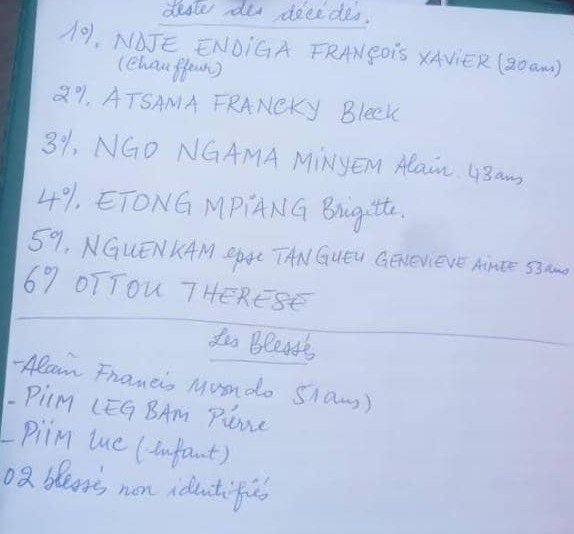 Liste des décédés.
1°/. NDJE ENDIGA FRANÇOIS XAVIER (20 ans)
(Chauffeur)
2°/. ATSAMA FRANCKY Bleck
3°/. NGO NGAMA MINYEM Alain. 43 ans
4°/. ETONG MPIANG Brigitte.
5°/. NGUENKAM epse TANGUEU GENEVIEVE AIMEE 53 ans
6°/ OTTOU THERESE
Les Blessés
- Alain Francis Mvondo 51 ans)
- PIIM LEG BAM Pierre
- PIIM Luc (enfant)
02 blessés non identifiés